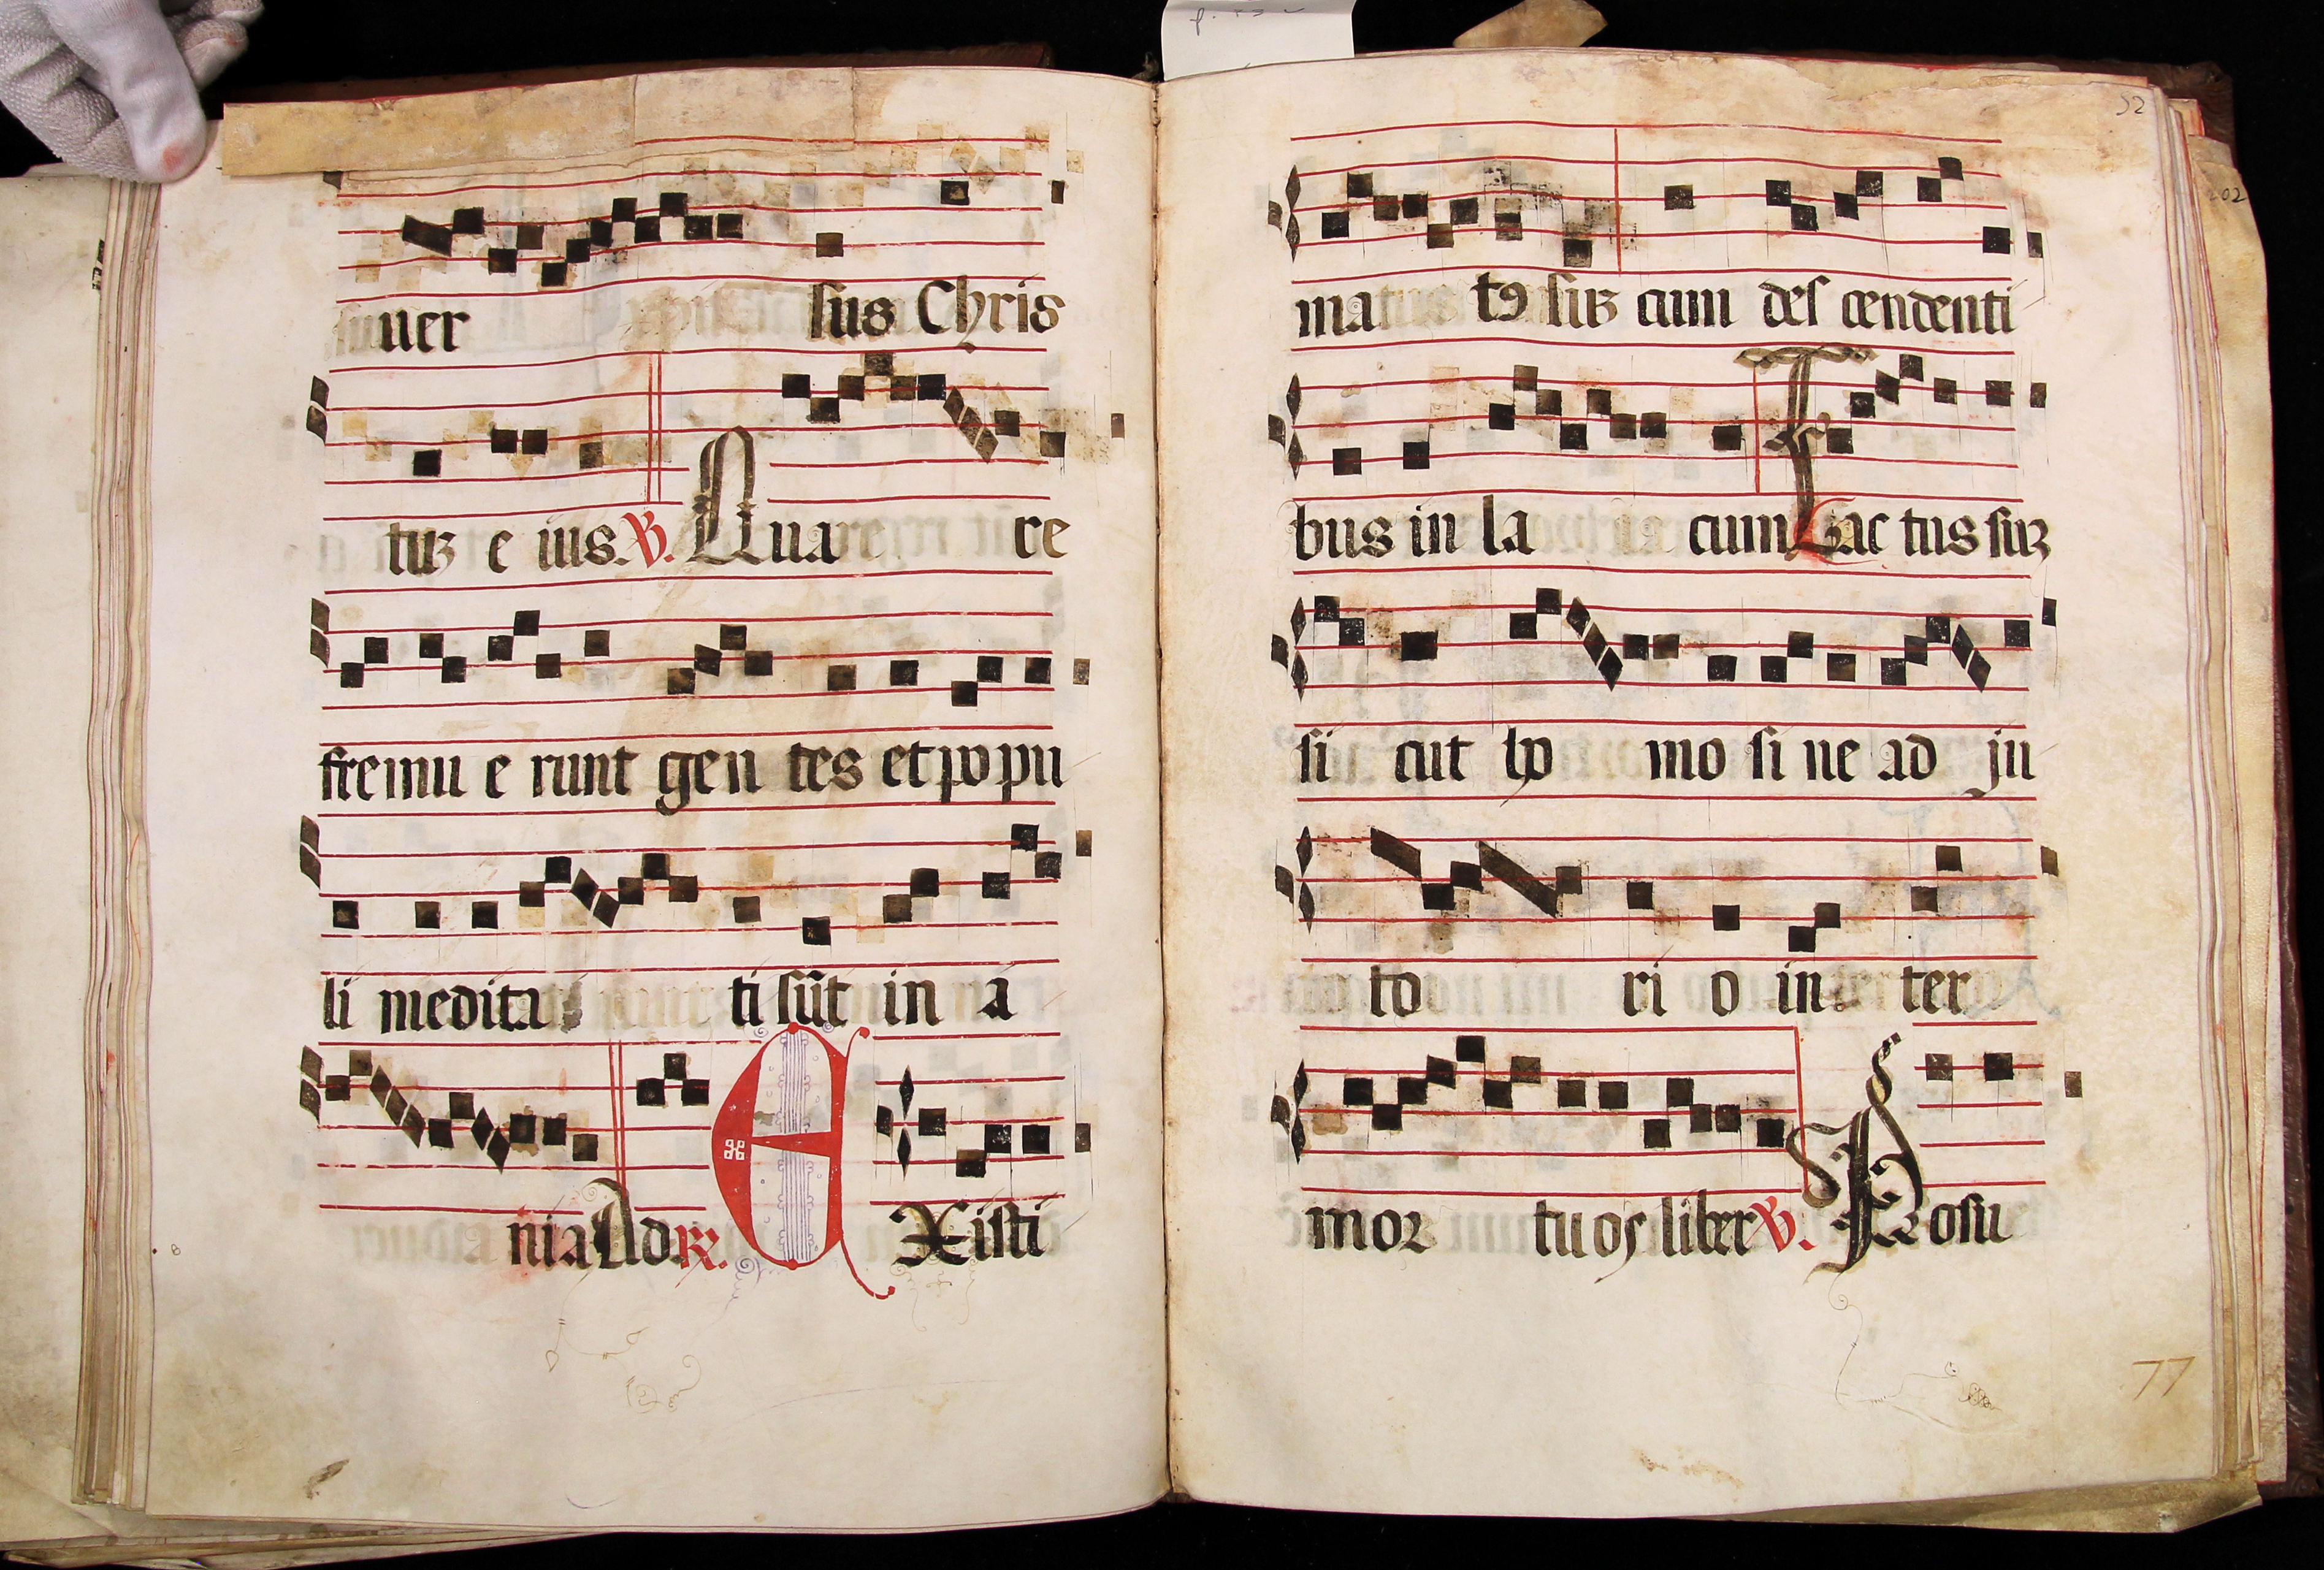 uer sus Chris
tuꝫ e ius. ℣. Qua re
fremu e runt gen tes et popu
li medita ti sūt in a
nia Ad ℟. E Xisti
ma tꝯ suꝫ cum des cendenti
bus in la cum Fac tus suꝫ
si cut ho mo si ne ad ju
to ri o in ter
moꝛ tuos liber ℣. Posu
52
77